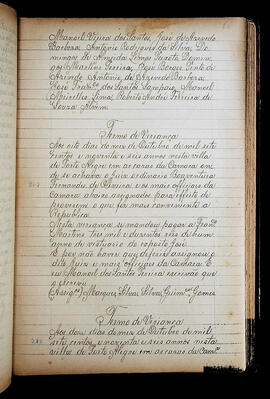 Manoel Vieira dos Santos, José de Azevedo
Barbosa, Antonio Rodrigues da Silva, Do
mingos de Almeida Lemos Peixoto Domin
gos Martins Pereira, José Borges Pinto de
Azevedo Antonio de Azevedo Barbosa,
José Franco dos Santos Sampaio, Manoel
Lima, Roberto André Ferreira de
Souza Alvim
Termo de Veriança
Aos oito dias do mez de Outubro de mil sete
centos e noventa e seis annos nesta villa
de Porto Alegre em as casas da Camara on
de se achava o Juiz ordinario Boaventura
Fernandes de Oliveira e os mais officiais da
Camara abaixo assignados para effeito de
proverem o que for mais conveniente a
Republica
Nesta vriança se mandou pagar a Franco
Martins tres mil e duzentos reis de hum
agno de vistuario do exposto José
E por não haver que diferir assignou o
dito Juiz e mais officiais da Camara. E
eu Manoel dos Santos Pereira escrivão que
o escrevi
(Assigos) Marques, Silva, Silva, Guimes Gomes
Termo de Veriança
Aos doze dias do mez de Outubro de mil,
sete centos, e noventa e seis annos nesta
villa de Porto Alegre em as casas da Camra